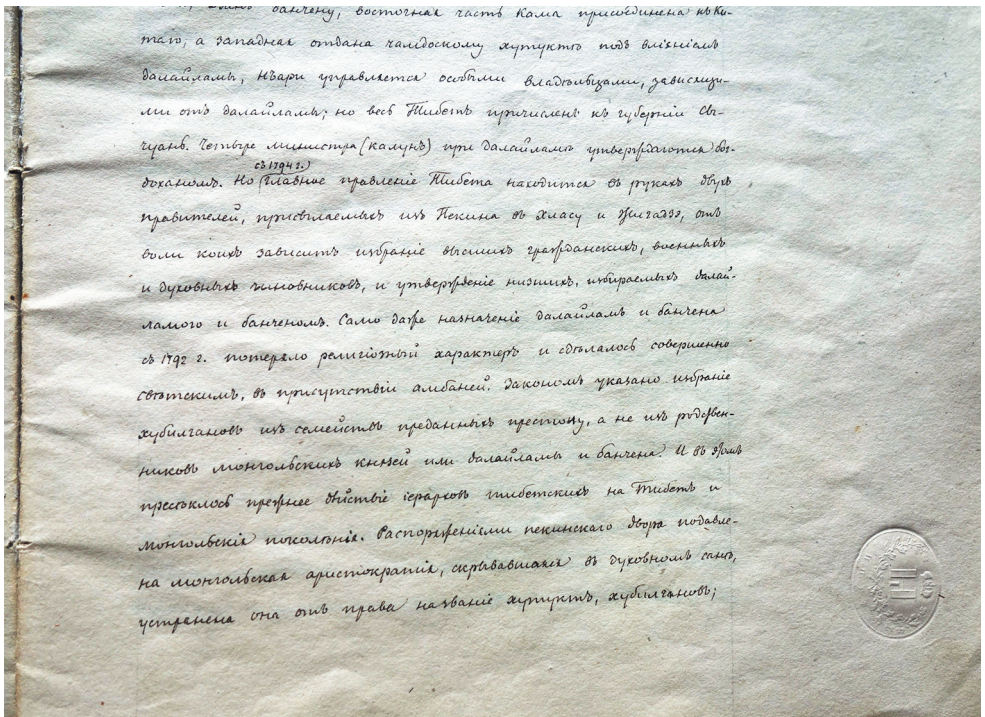 банчену, восточная часть Кама присоединена къ Ки-
таю, а западная отдана чамдоскому хутуктѣ подъ вліяніемъ
далайламы, Нъари управляется особыми владѣльцами, зависящи-
ми отъ далайламы; но весь Тибетъ причисленъ къ губерніи Сы-
чуань. Четыре министра (калунъ) при далайламѣ утверждаются бог-
съ 1794 г.)
доханомъ. Но (главное правленіе Тибета находится въ рукахъ двухъ
правителей, присылаемыхъ изъ Пекина въ Хласу и Жигадзэ, отъ
воли коихъ зависитъ избраніе высшихъ гражданскихъ, военныхъ
и духовныхъ чиновниковъ, и утвержденіе низшихъ, избираемыхъ далай-
ламою и банченомъ. Само даже назначеніе далайламъ и банчена
съ 1792 г. потеряло религіозный характеръ и сдѣлалось совершенно
свѣтскимъ, въ присутствіи амбаней. Закономъ указано избраніе
хубилгановъ изъ семействъ преданныхъ престолу, а не изъ родствен-
никовъ монгольскихъ князей или далайламы и банчена. И въ этомъ
пресѣклось прежнее дѣйствіе іерарховъ тибетскихъ на Тибетъ и
монгольскія поколѣнія. Распоряженіями пекинскаго двора подавле-
на монгольская аристократія, скрывавшаяся въ духовномъ санѣ,
устранена она отъ права на званіе хутуктъ, хубилгановъ;